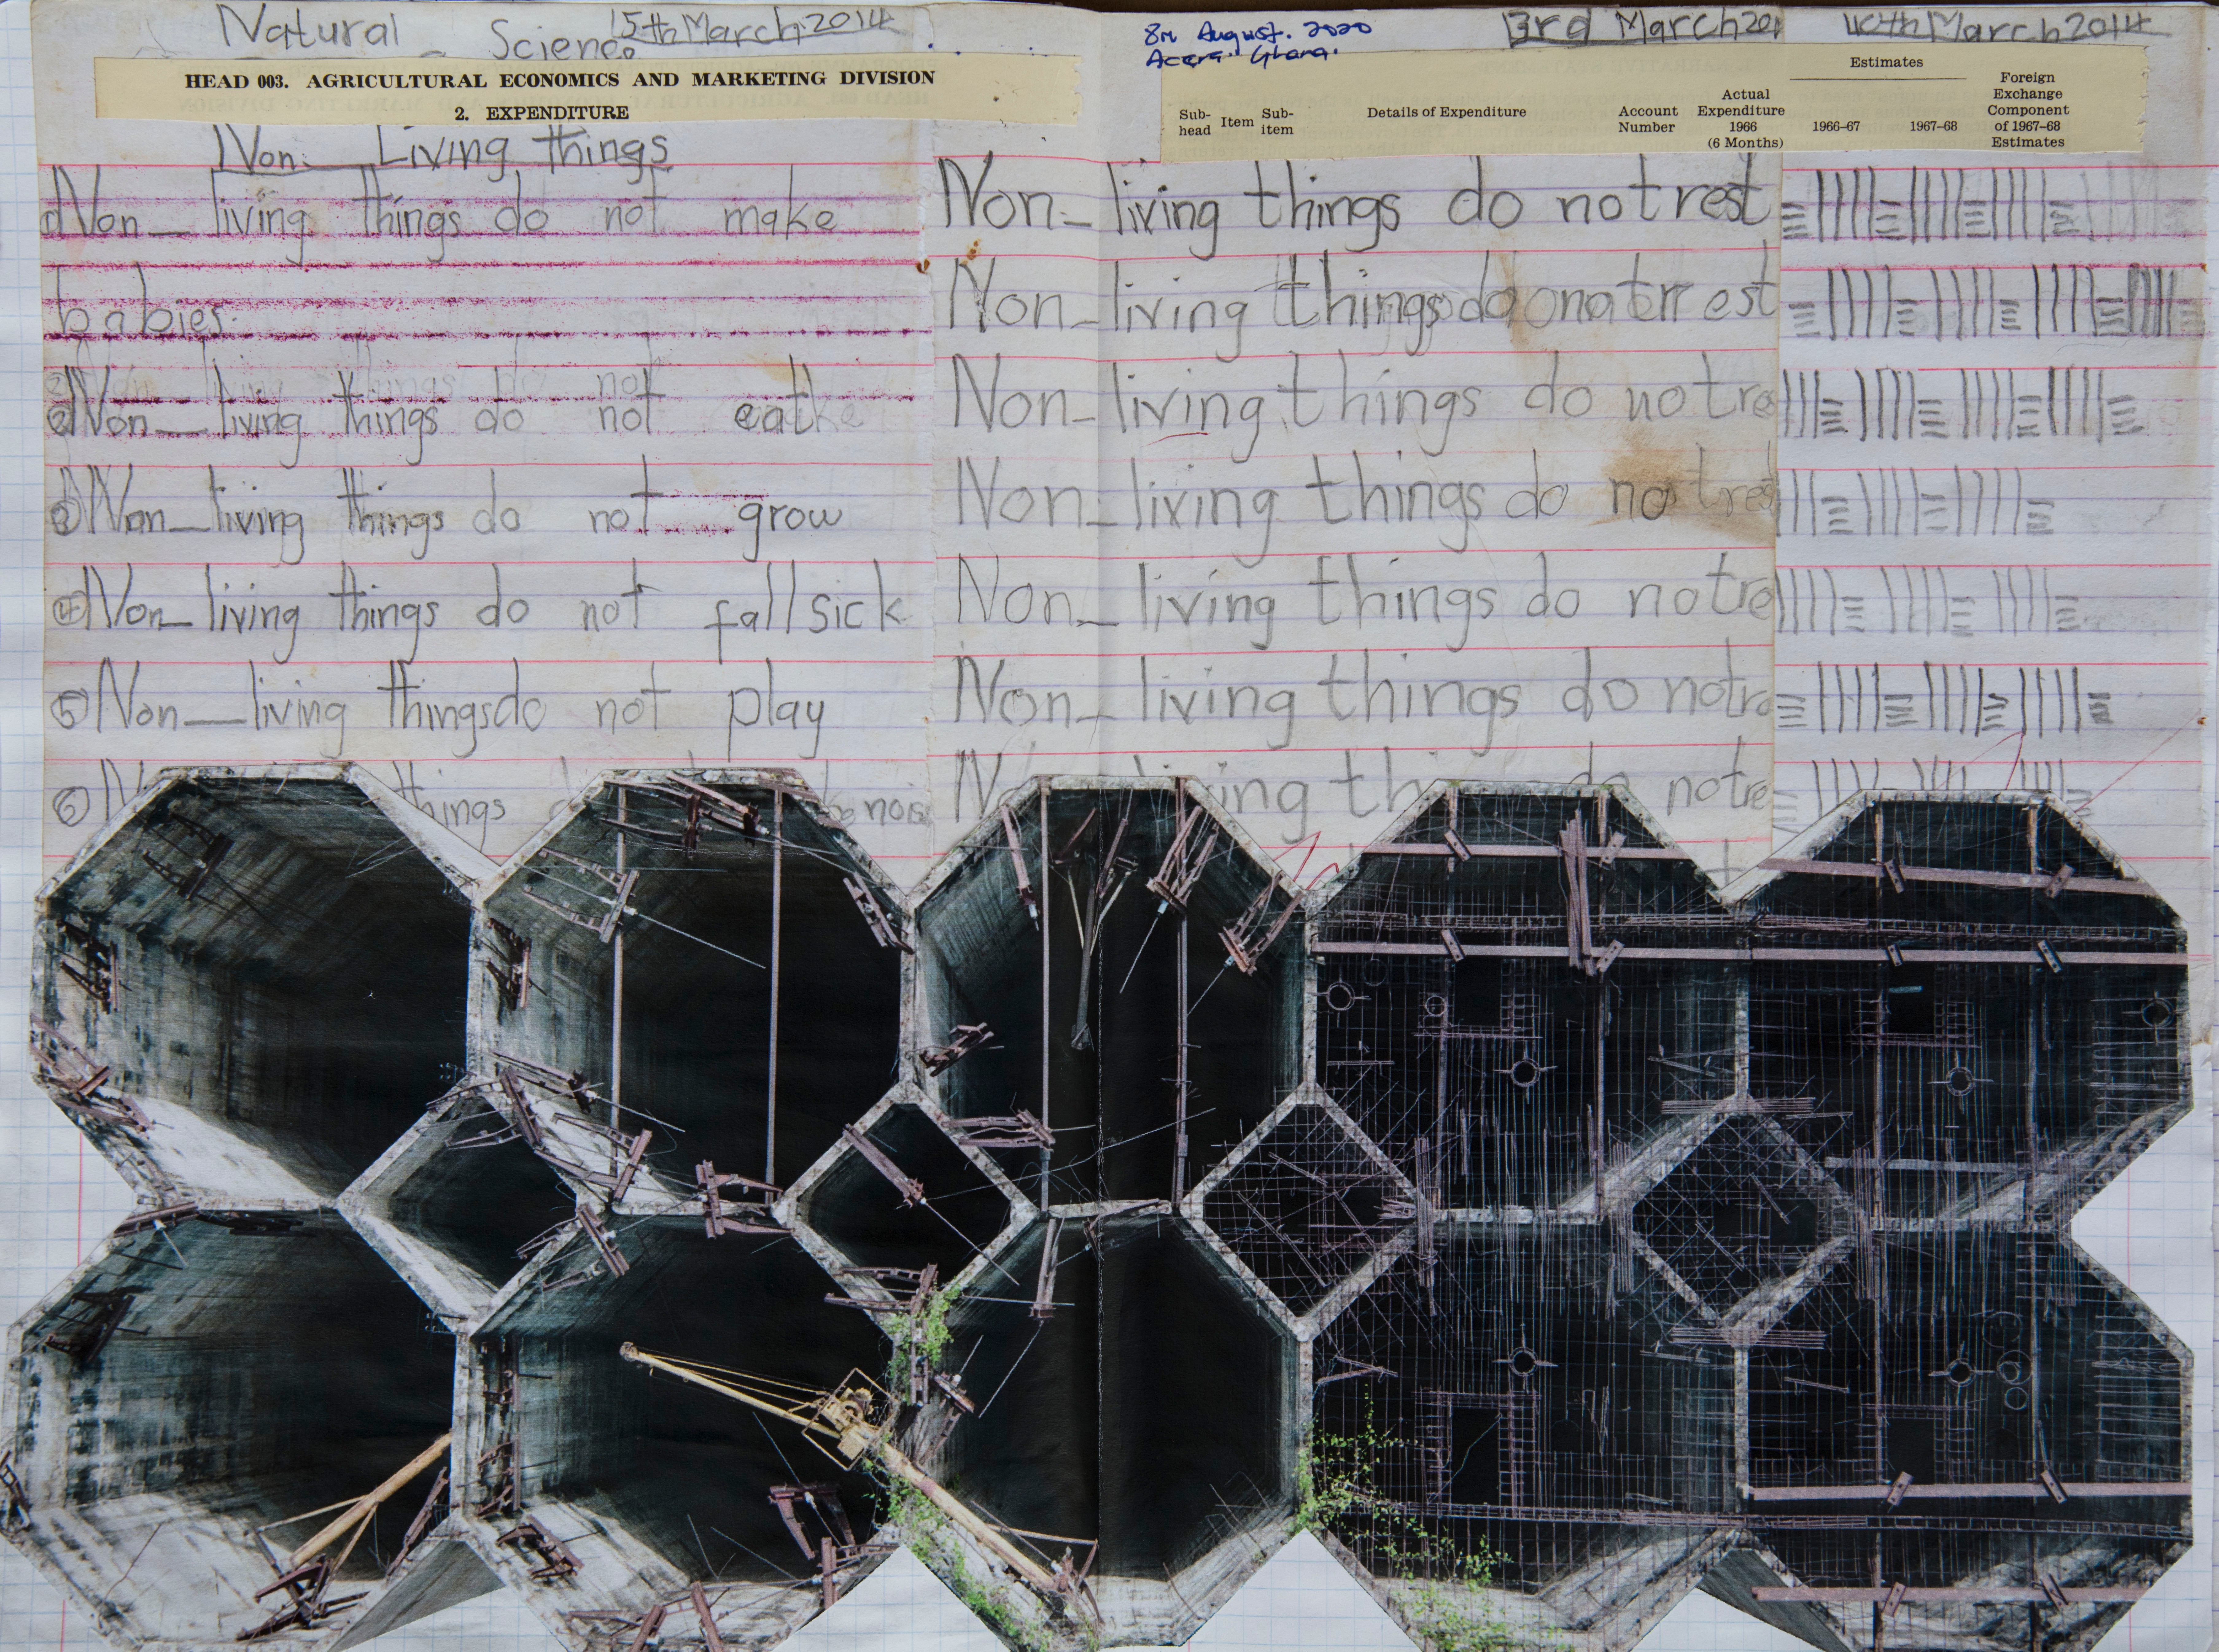 Natural - Science 5th March 2014
HEAD 003. AGRICULTURAL ECONOMICS AND MARKETING DIVISION
2. EXPENDITURE
Non - Living things
Non - living things do not make
babies.
② Non - living things do not eat
③ Non - living things do not grow
④ Non - living things do not fall sick
⑤ Non - living things do not play
⑥ things nois
8th August. 2020
Accra. Ghana.
3rd March 201
10th March 2014
Estimates
Sub-head Item Sub-item Details of Expenditure Account Number Actual Expenditure 1966 (6 Months) 1966–67 1967–68 Foreign Exchange Component of 1967–68 Estimates
Non - living things do not rest
Non - living things do not rest
Non - living things do not re
Non - living things do not res
Non - living things do not re
Non - living things do not re
ving thi do not re